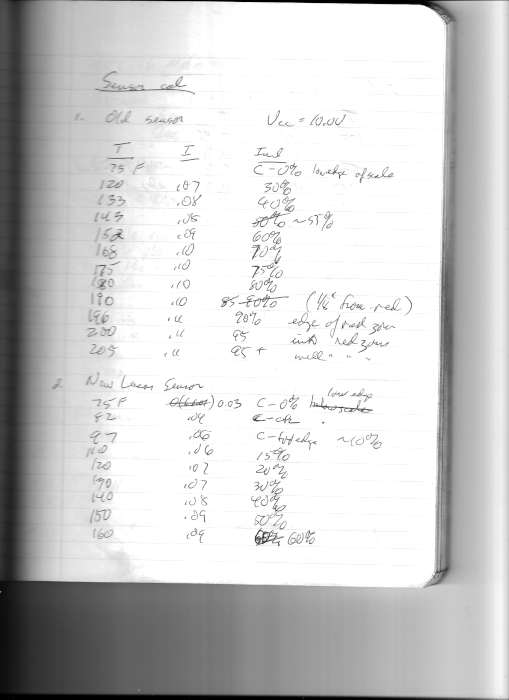 Sensor cal
1. Old sensor Vcc = 10.0V
T I Ind
75 F C-0% low edge of scale
120 .07 30%
133 .08 40%
145 .08 50% ~55%
152 .09 60%
168 .10 70%
175 .10 75%
180 .10 80%
190 .10 85-90% (1/16" from red)
196 .11 90% edge of red zone
200 .11 95 into red zone
205 .11 95+ well " " "
2. New Lucas Sensor
75 F 0.03 C-0% low edge
82 .04 C-ctr
97 .05 C-hot edge ~10%
110 .06 15%
120 .07 20%
.07 30%
140 .08 40%
150 .09 50%
160 .09 60%